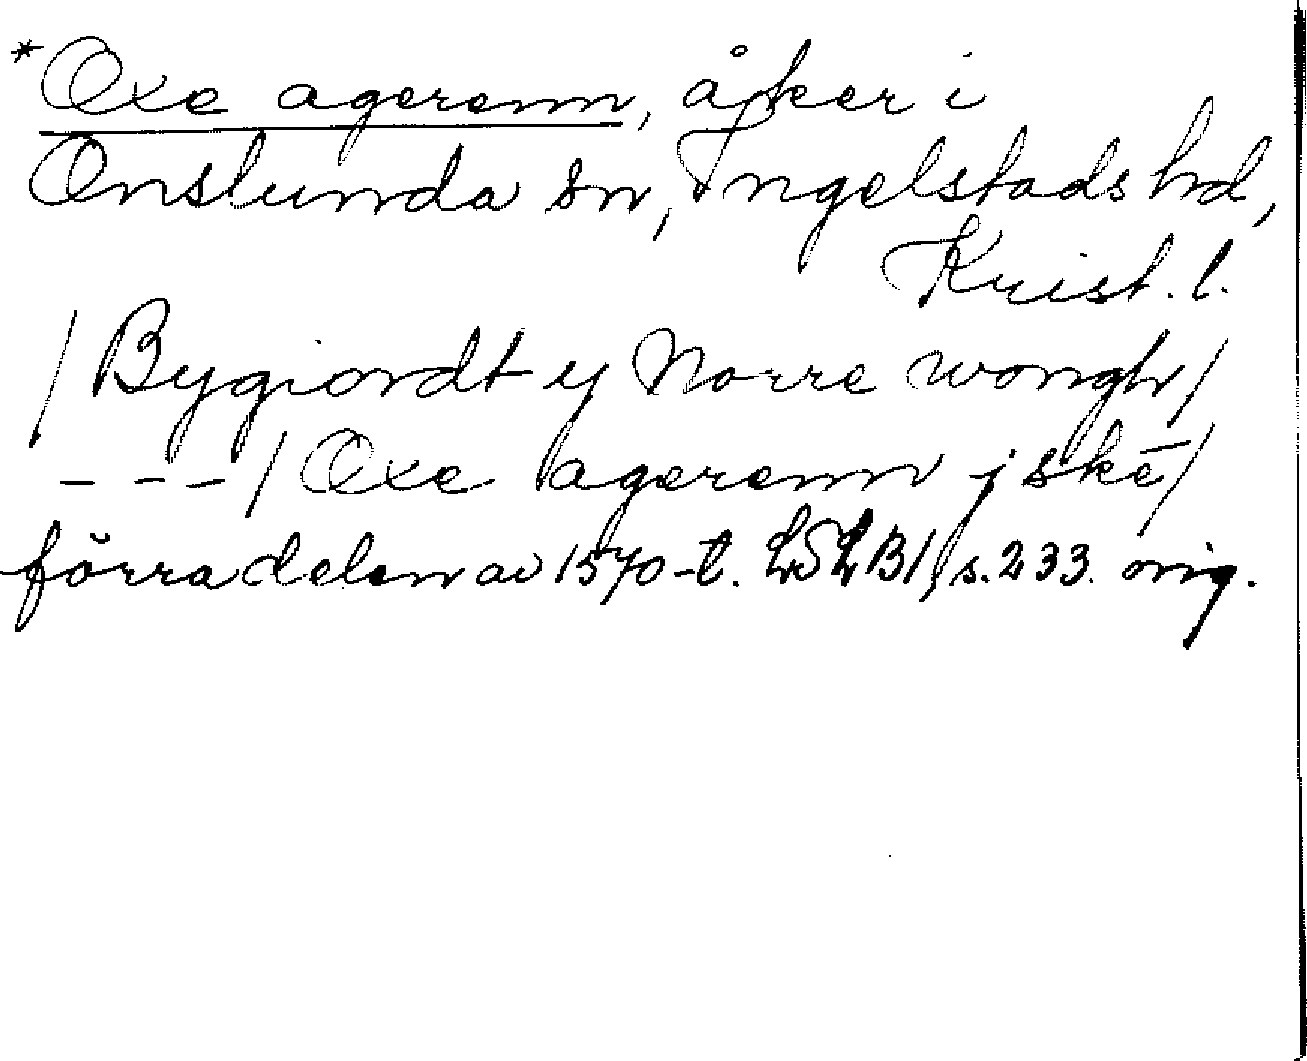 *Oxe agerenn, åker i
Onslunda sn, Ingelstads hd,
Krist. l.
/Bygiordt y Norre wongh/
- - -/Oxe agerenn j ske/
förra delen av 1570-t. LSLB1, s. 233. orig.